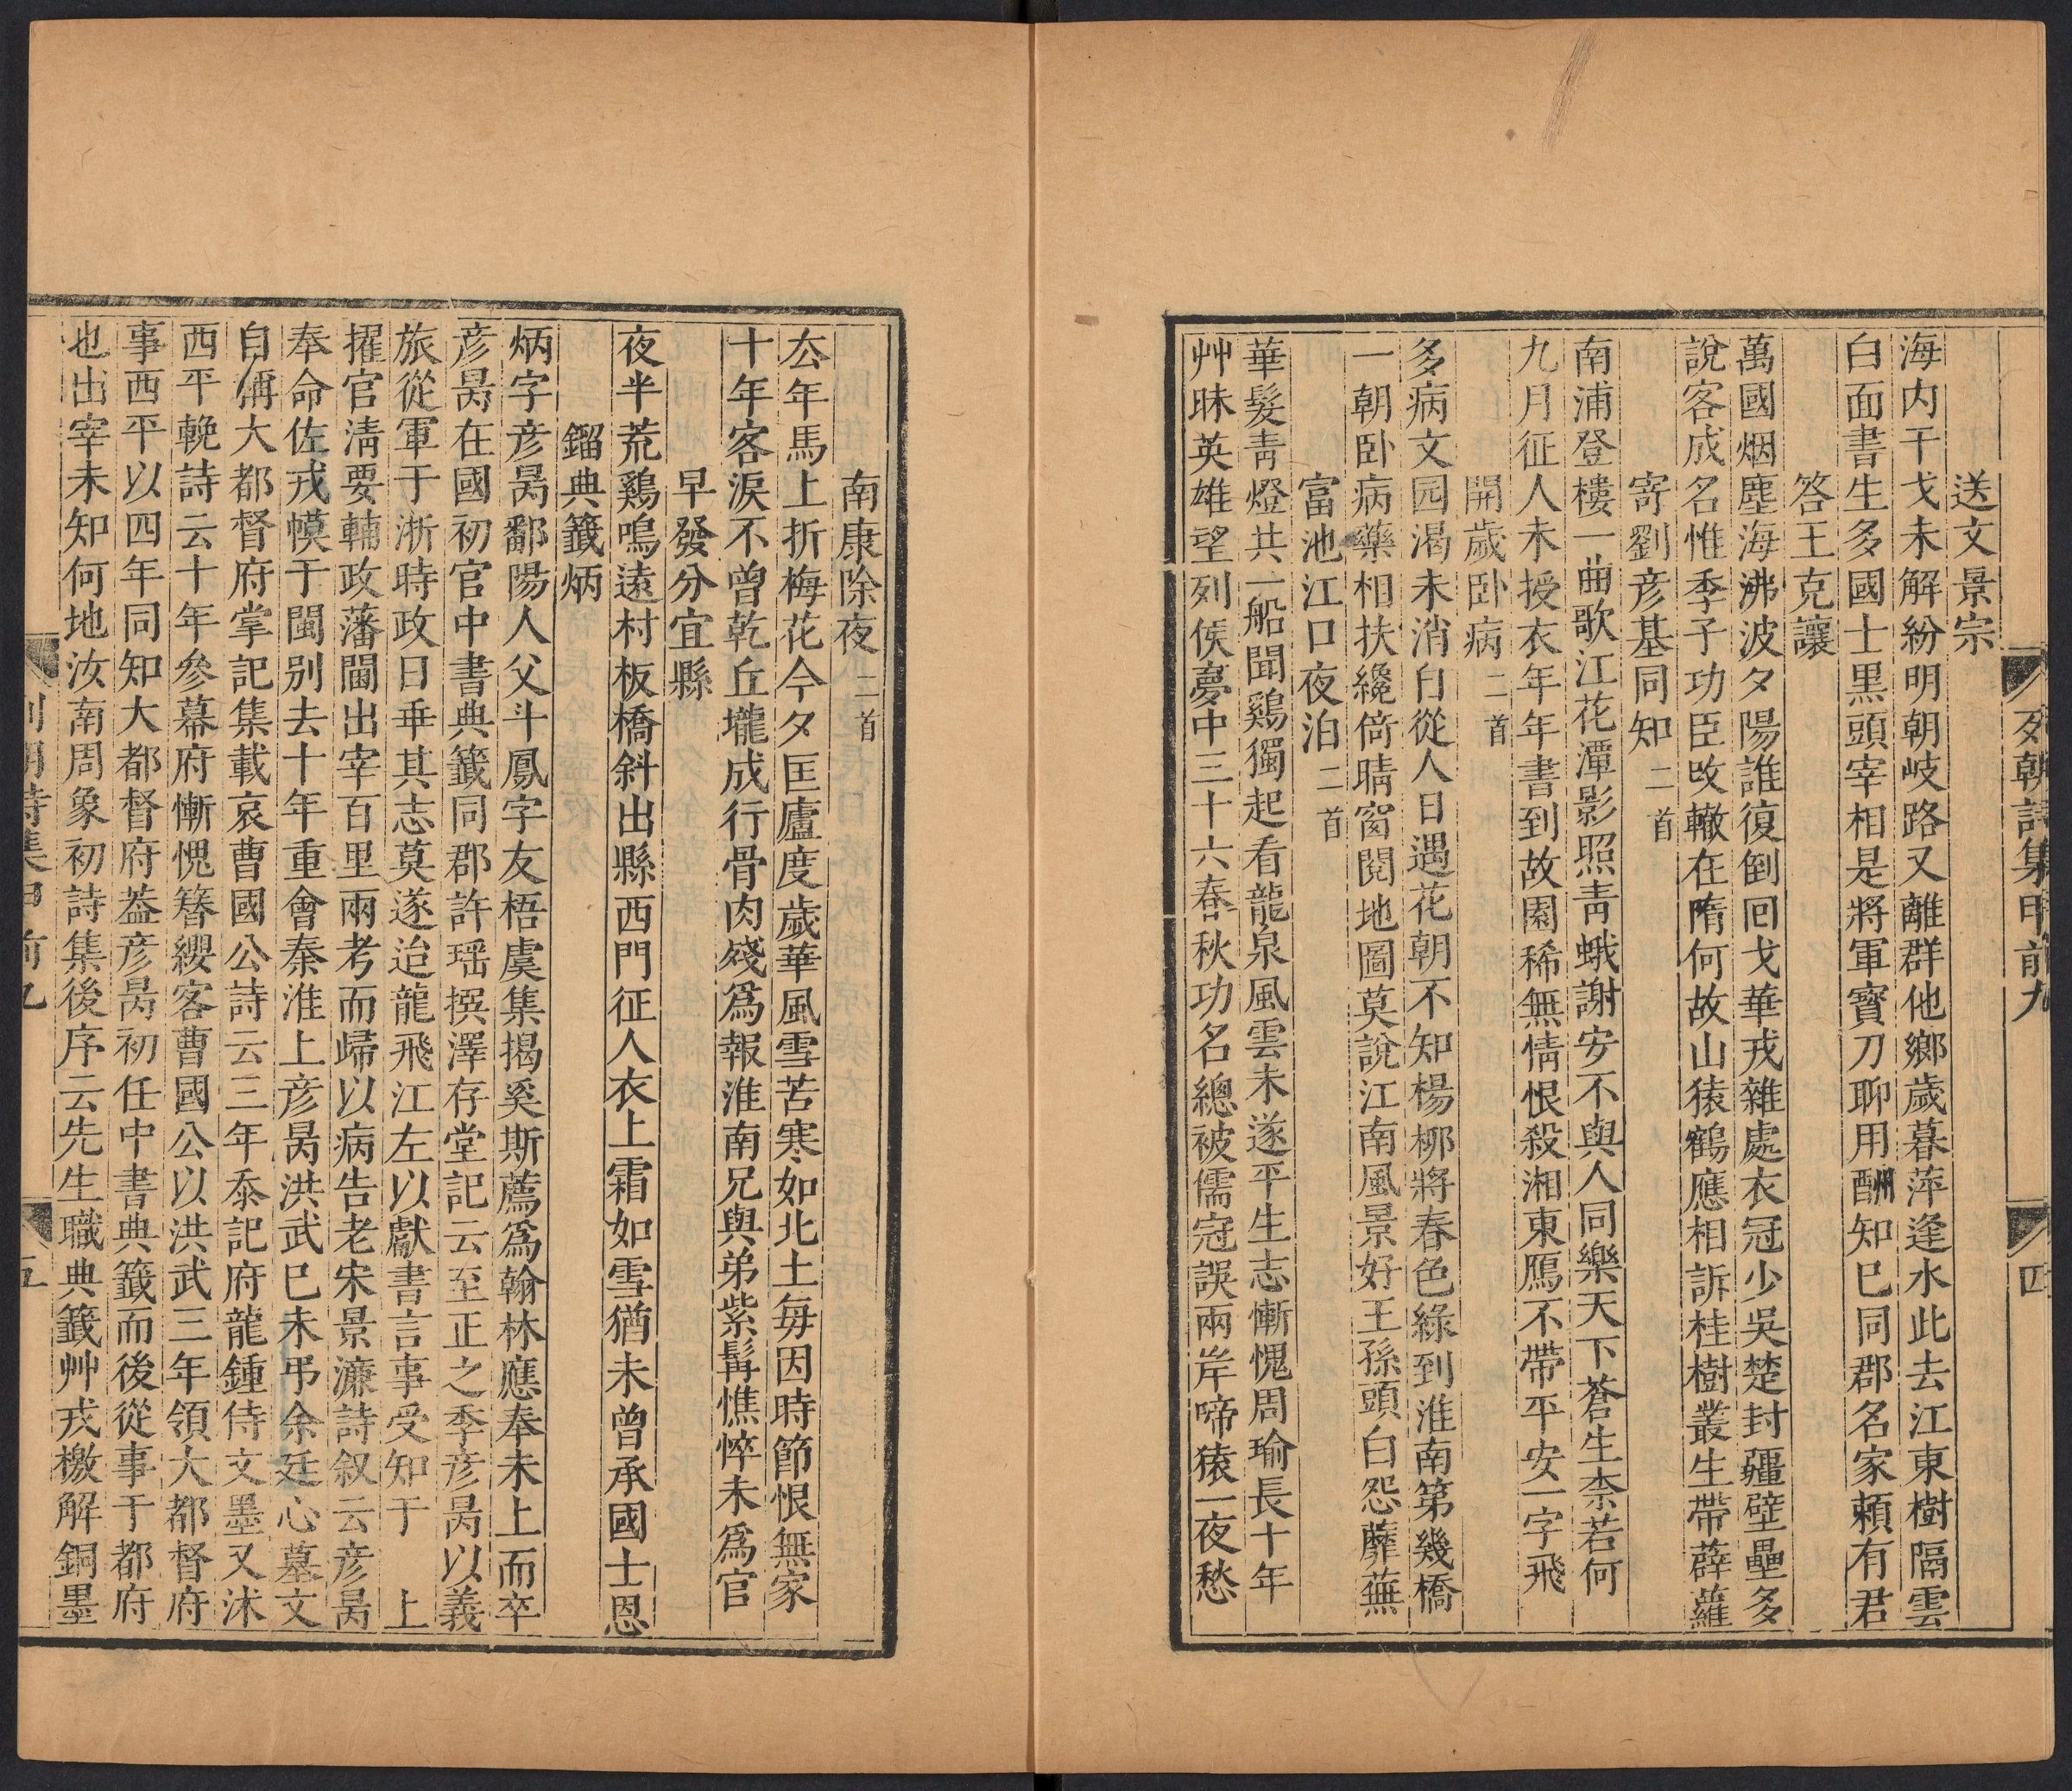 列朝詩集甲前九　四
送文景宗
海内干戈未解紛明朝岐路又離群他鄉歲暮萍逢水此去江東樹隔雲
白面書生多國士黒頭宰相是將軍寶刀聊用酬知已同郡名家頼有君
答王克讓
萬國烟塵海沸波夕陽誰復倒囘戈華戎雜處衣冠少吳楚封疆壁壘多
說客成名惟季子功臣攺轍在隋何故山猿鶴應相訴桂樹叢生帶薜蘿
寄劉彦基同知二首
南浦登樓一曲歌江花潭影照青蛾謝安不與人同樂天下蒼生柰若何
九月征人未授衣年年書到故園稀無情恨殺湘東鴈不帶平安一字飛
開歲卧病二首
多病文园渴未消㠯從人日遇花朝不知楊柳將春色綠到淮南第幾橋
一朝卧病藥相扶纔倚晴窗閱地圖莫說江南風景好王孫頭白怨蘼蕪
富池江口夜泊二首
華髮青燈共一船聞鷄獨起看龍泉風雲未遂平生志慚愧周瑜長十年
艸昧英雄望列侯夢中三十六春秋功名總被儒冠誤兩岸啼猿一夜愁
南康除夜二首
厺年馬上折梅花今夕匡廬度歲華風雪苦寒如北土毎因時節恨無家
十年客淚不曾乾丘壠成行骨肉殘爲報淮南兄與弟紫髯憔悴未爲官
早發分宜縣
夜半荒鷄鳴遠村板橋斜出縣西門征人衣上霜如雪猶未曾承國士恩
鎦典籖炳
炳字彦昺鄱陽人父斗鳳字友梧虞集揭奚斯薦爲翰林應奉未上而卒
彦昺在國初官中書典籖同郡許瑶撰澤存堂記云至正之季彦昺以義
旅從軍于浙時政日乖其志莫遂迨龍飛江左以獻書言事受知于　上
擢官淸要輔政藩閫出宰百里兩考而歸以病告老宋景濂詩叙云彦昺
奉命佐戎幙于閩别去十年重會秦淮上彦昺洪武已未弔余廷心墓文
自稱大都督府掌記集載哀曹國公詩云三年叅記府龍鍾侍文墨又沐
西平輓詩云十年參幕府慚愧簪纓客曹國公以洪武三年領大都督府
事西平以四年同知大都督府葢彦昺初任中書典籖而後從事于都府
也出宰未知何地汝南周象初詩集後序云先生職典籖艸戎檄解銅墨
列朝詩集甲前九　五